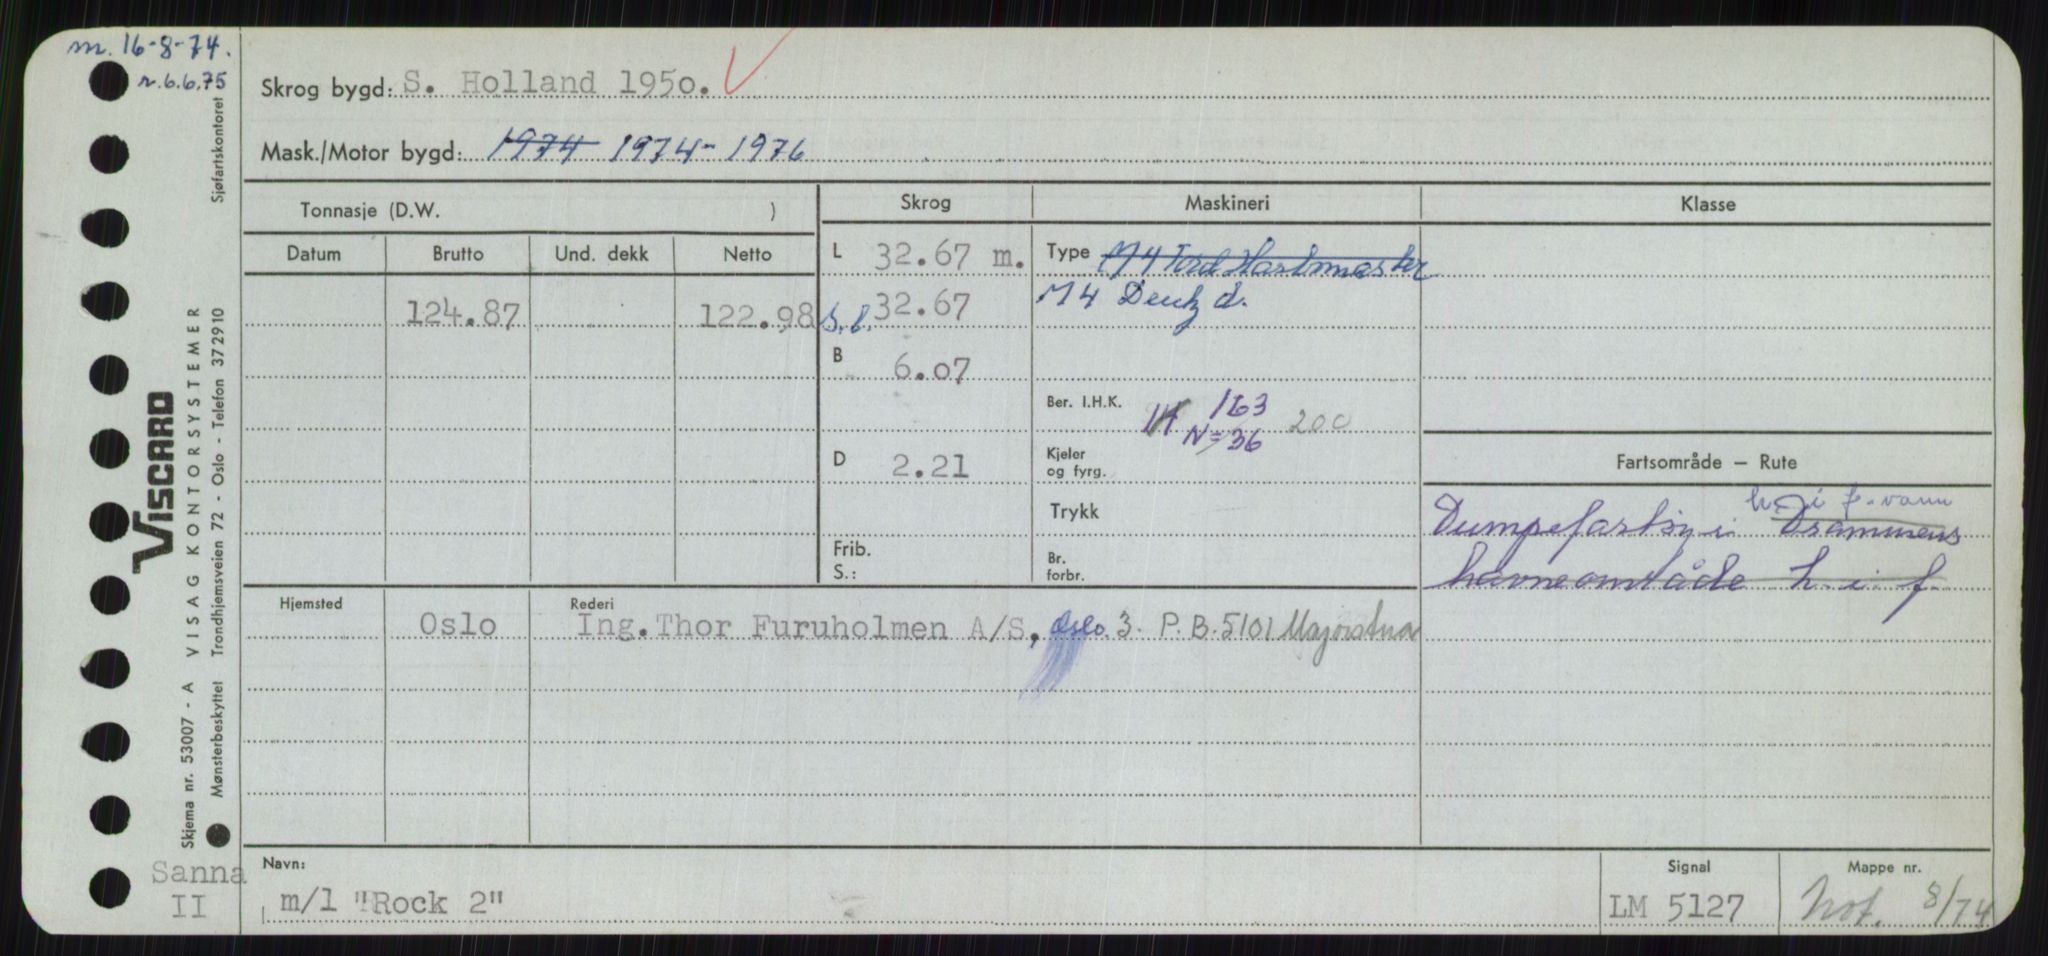 m. 16-8-74.
r. 6.6.75
Sjøfartskontoret
Skrog bygd: S. Holland 1950.
Mask./Motor bygd: 1974 1974- 1976
Tonnasje (D.W. )
Skrog
Maskineri
Klasse
Datum Brutto Und. dekk Netto
L 32.67 m.
Type M 4 Ford
M 4 Deutz d.
124.87 122.98
b.l. 32.67
B 6.07
Ber. I.H.K. 163 200
N=36
D 2.21
Kjeler
og fyrg.
Trykk
Frib.
S.:
Br.
forbr.
Fartsområde – Rute
h. i f. vann
Dumpefartøy i Drammens
havneområde h. i. f.
Hjemsted Oslo
Rederi Ing. Thor Furuholmen A/S, Oslo 3. P.B. 5101 Majorstua
VISCARD
VISAG KONTORSYSTEMER
Trondhjemsveien 72 - Oslo - Telefon 372910
Skjema nr. 53007 - A
Mønsterbeskyttet
Sanna
II
Navn:
m/l "Rock 2"
Signal
LM 5127
Mappe nr.
Hof. 8/74